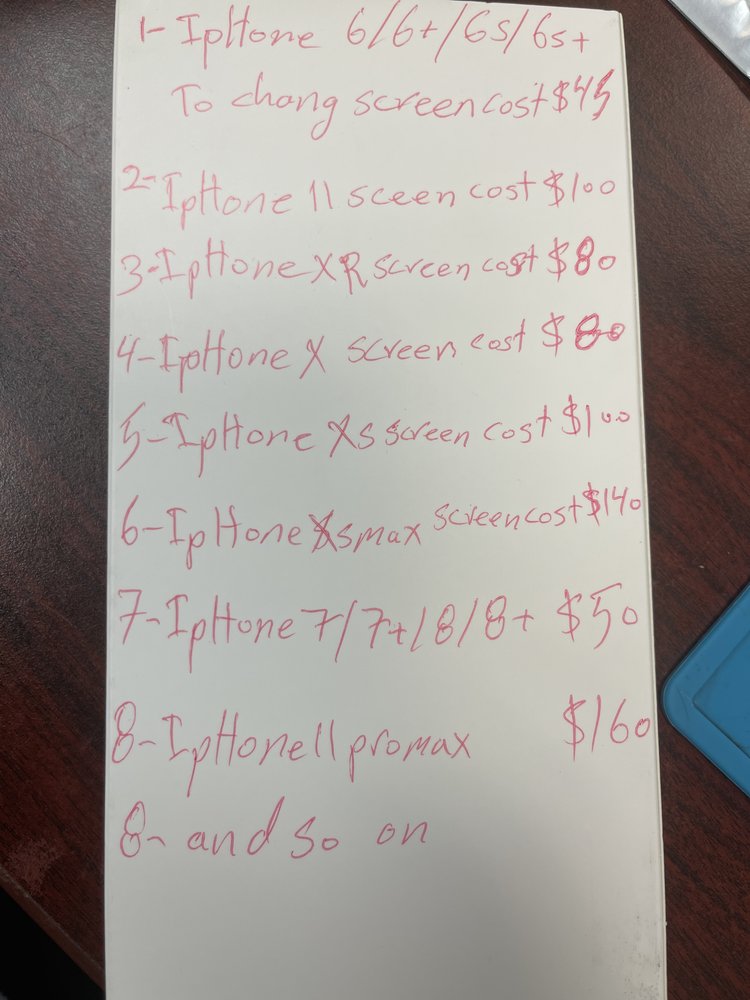 1- IpHone 6/6+/6s/6s+
To chang screen cost $45
2- IpHone 11 sceen cost $100
3- IpHone XR screen cost $80
4- IpHone X screen cost $80
5- IpHone Xs screen cost $100
6- IpHone Xsmax screen cost $140
7- IpHone 7/7+/8/8+ $50
8- IpHone 11 promax $160
8- and so on